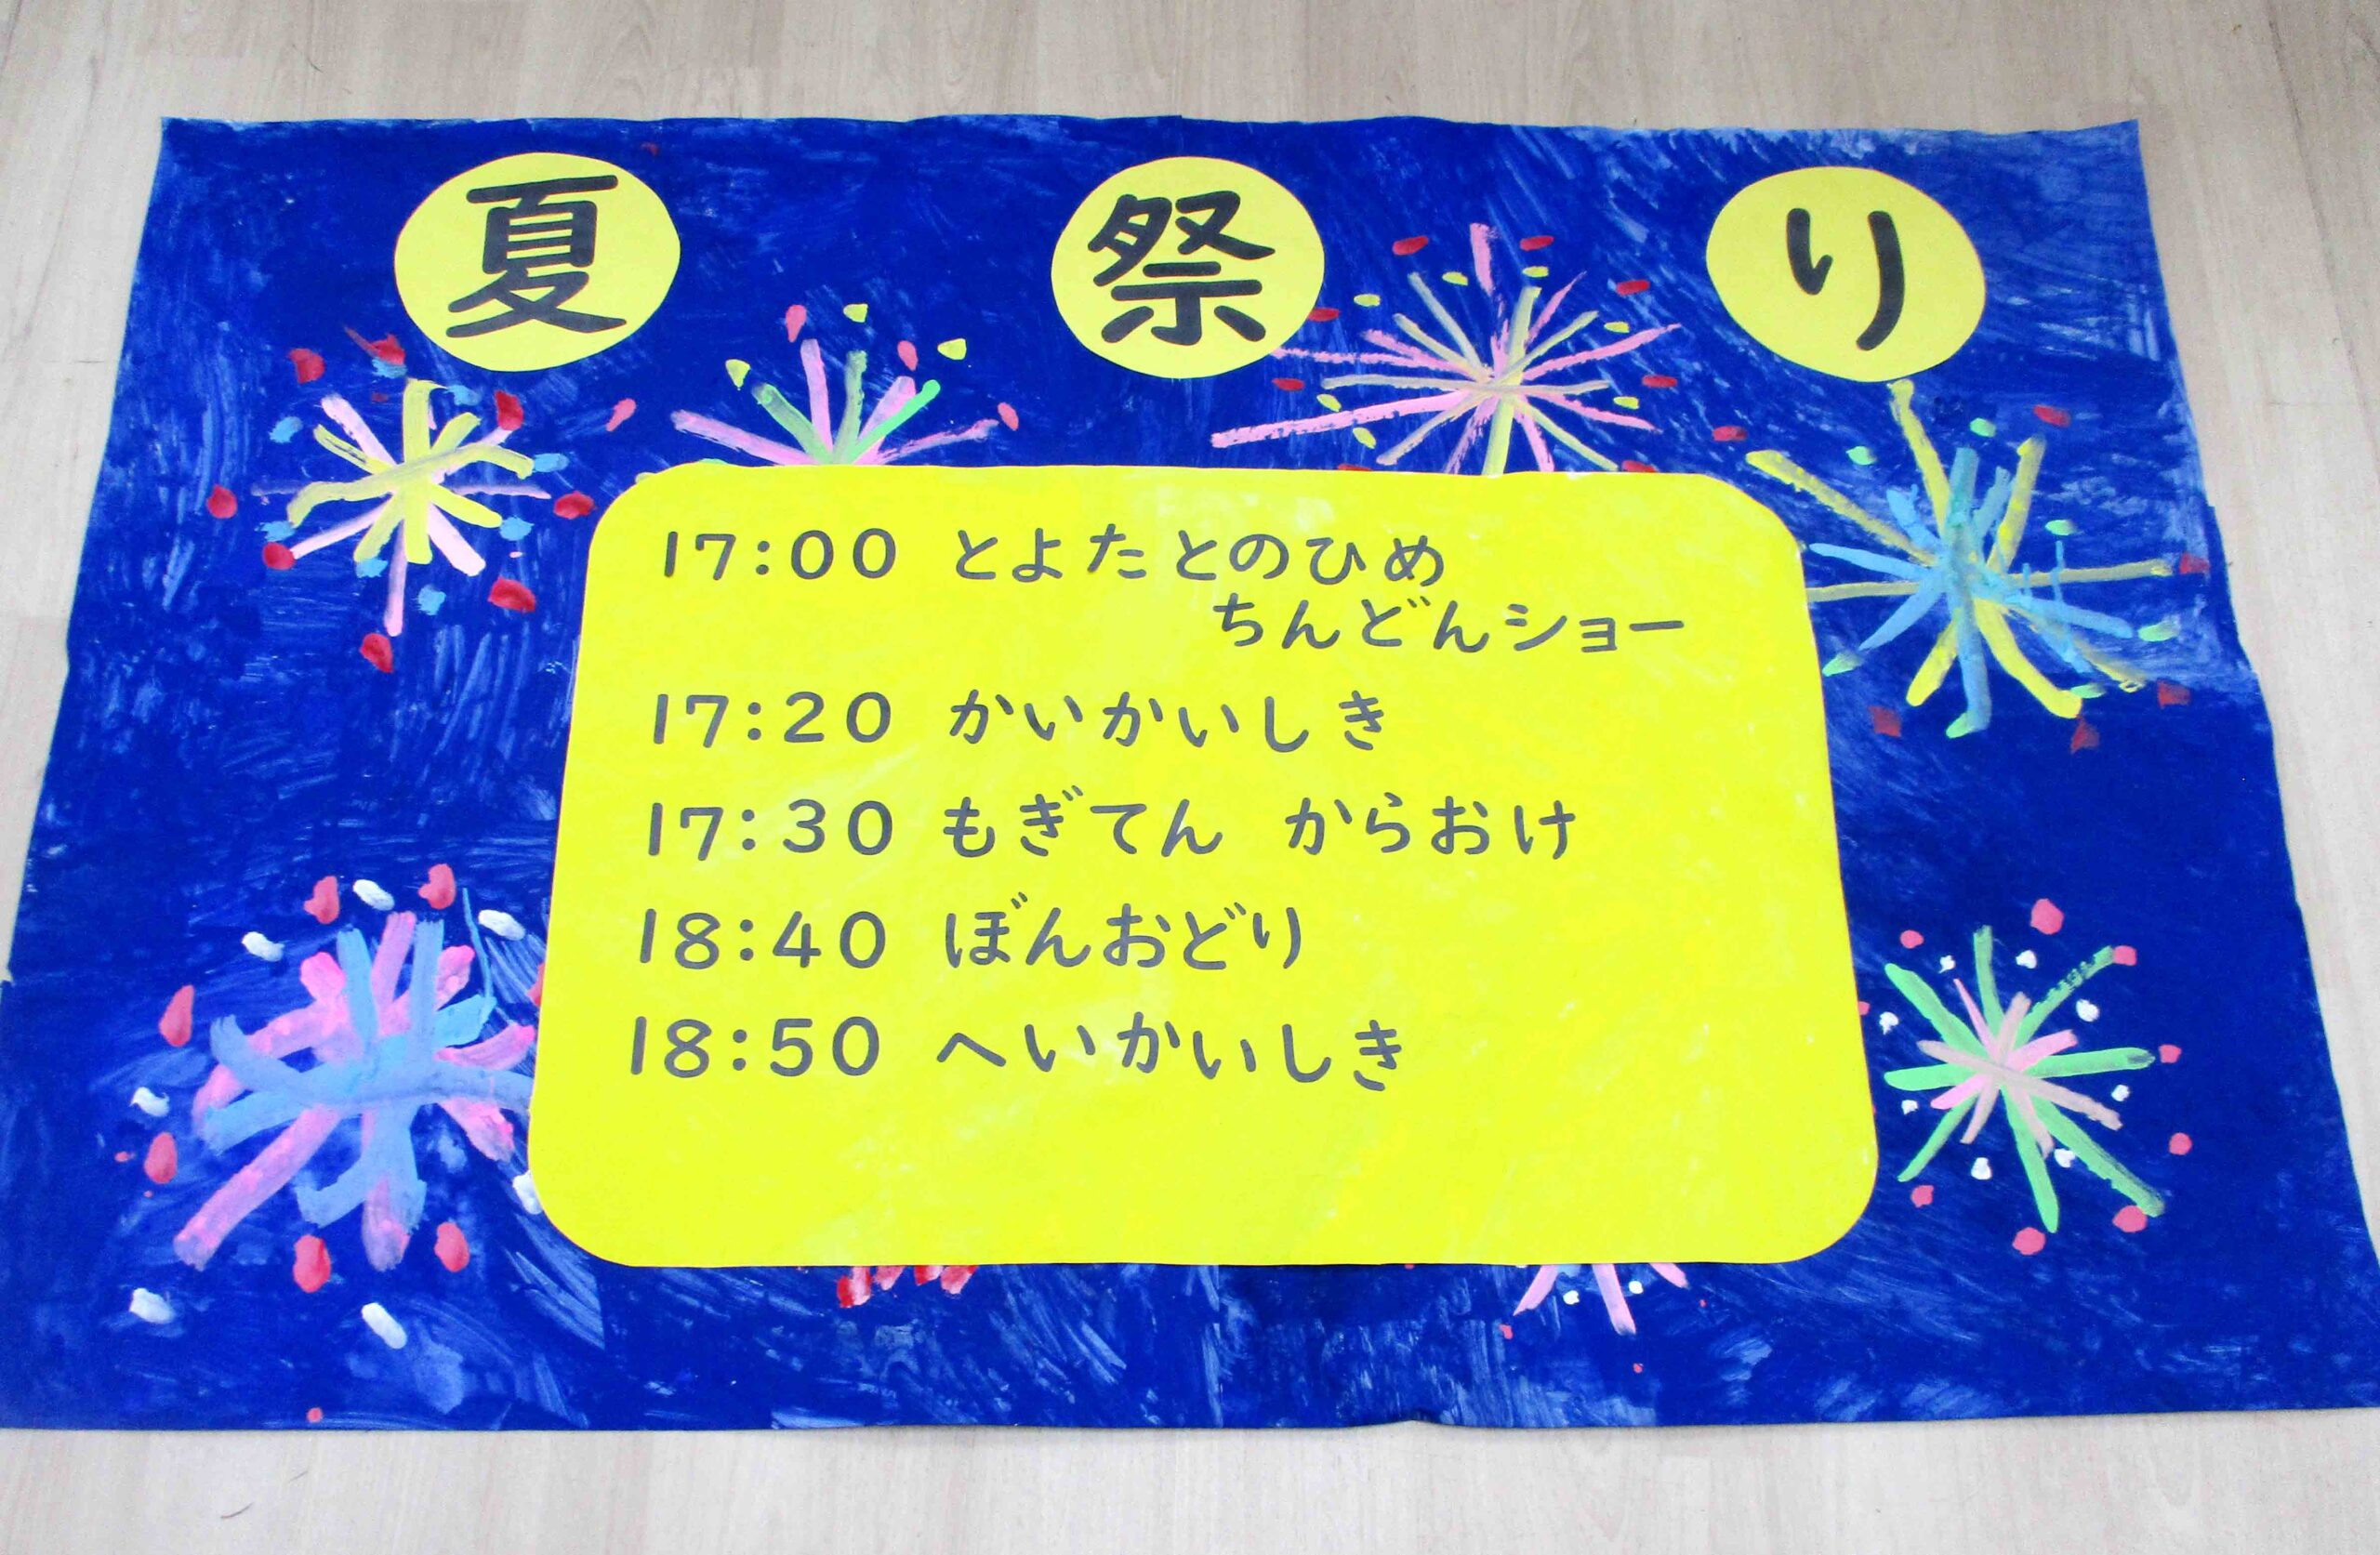 夏祭り
17:00 とよたとのひめ
ちんどんショー
17:20 かいかいしき
17:30 もぎてん からおけ
18:40 ぼんおどり
18:50 へいかいしき